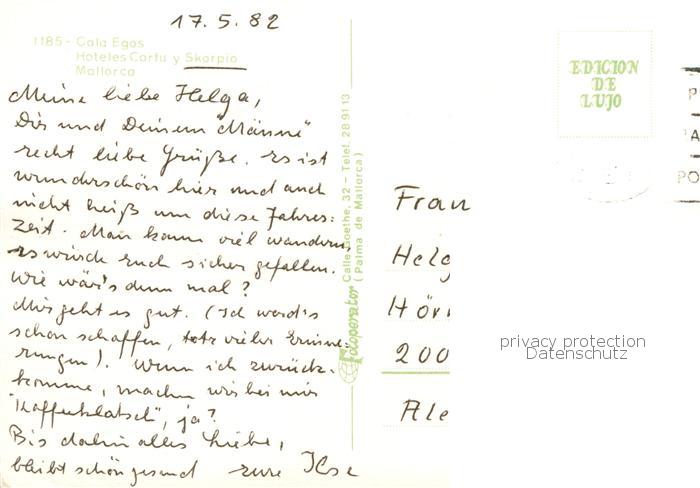 17.5.82
1185 - Cala Egos
Hoteles Corfu y Skorpio
Mallorca
Meine liebe Helga,
Dir und Deinem "Männe"
recht liebe Grüße. Es ist
wunderschön hier und auch
nicht heiß um diese Jahres=
zeit. Man kann viel wandern,
es würde Euch sicher gefallen.
Wie wär's denn mal?
Mir geht es gut. (Ich werd's
schon schaffen, trotz vieler Erinne=
rungen). Wenn ich zurück-
komme, machen wir bei mir
"Kaffeeklatsch", ja?
Bis dahin alles Liebe,
bleibt schön gesund Eure Ilse
Fotoperator Calle Goethe, 32 - Telef. 28 91 13
(Palma de Mallorca)
EDICION
DE
LUJO
P
A
PO
Frau
Helg
Hör
200
Ale
privacy protection
Datenschutz